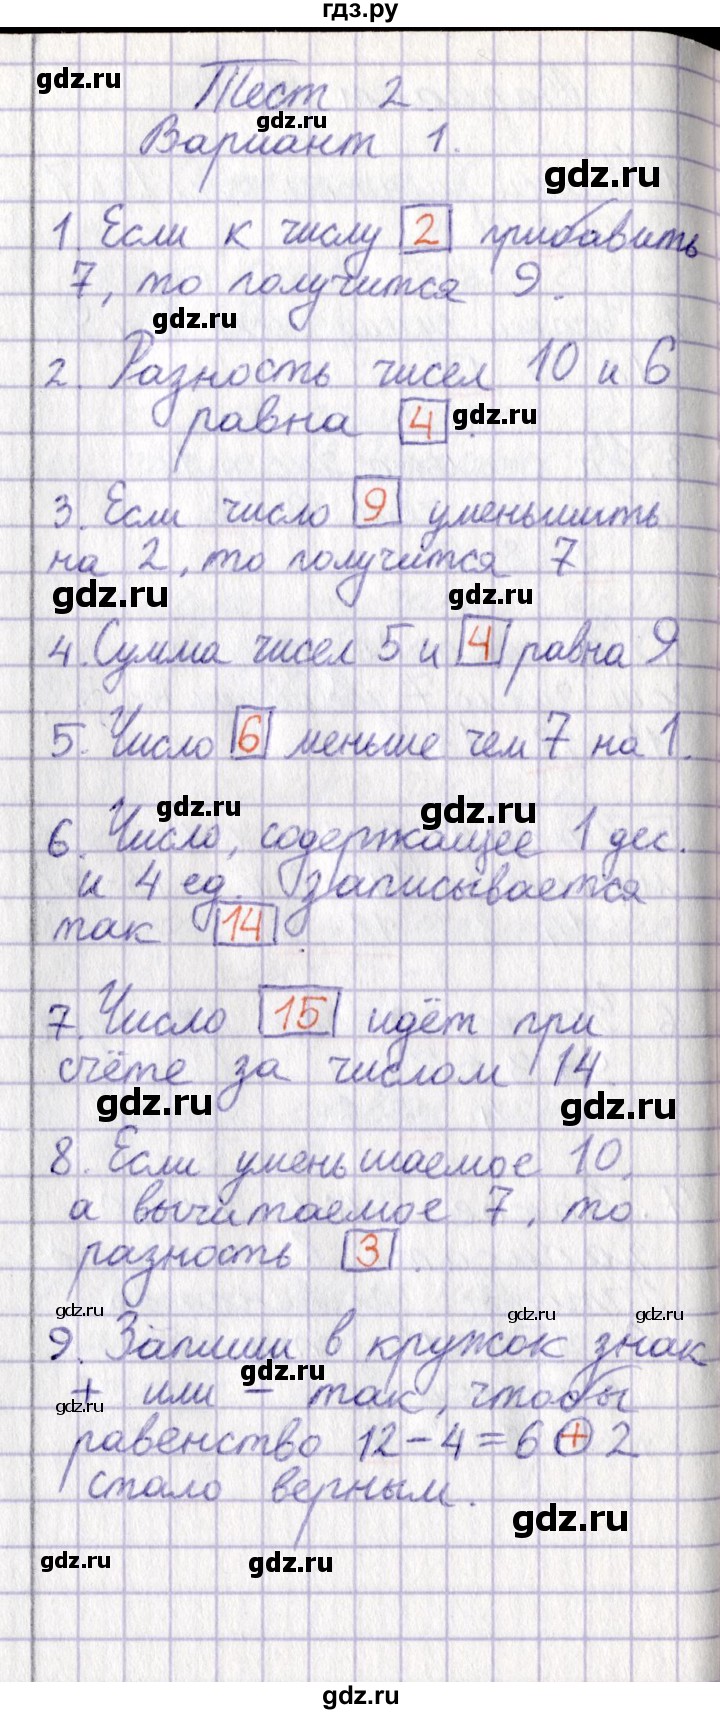 гдз.ру
gdz.ru
Тест 2.
gdz.ru
Вариант 1.
gdz.ru
1. Если к числу 2 прибавить
7, то получится 9.
gdz.ru
2. Разность чисел 10 и 6
равна 4.
gdz.ru
3. Если число 9 уменьшить
на 2, то получится 7
gdz.ru
gdz.ru
4. Сумма чисел 5 и 4 равна 9
5. Число 6 меньше чем 7 на 1.
gdz.ru
gdz.ru
6. Число, содержащее 1 дес.
и 4 ед. записывается
так 14
7. Число 15 идёт при
счёте за числом 14.
gdz.ru
gdz.ru
8. Если уменьшаемое 10,
а вычитаемое 7, то
разность 3.
gdz.ru
gdz.ru
gdz.ru
9. Запиши в кружок знак
gdz.ru
+ или − так, чтобы
gdz.ru
равенство 12 − 4 = 6 + 2
стало верным.
gdz.ru
gdz.ru
gdz.ru
gdz.ru